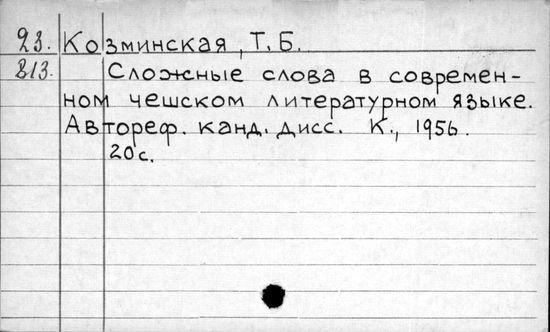 23. Козминская, Т. Б.
813. Сложные слова в современ-
ном чешском литературном языке.
Автореф. канд. дисс. К., 1956.
20 с.